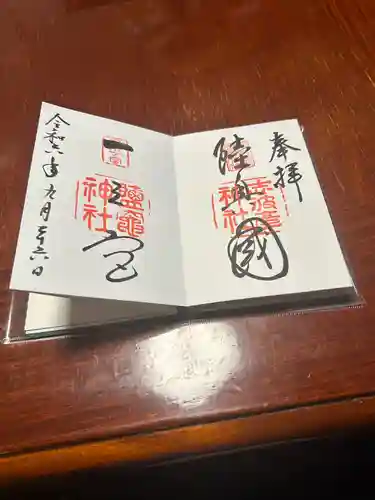 奉拝
陸奥國
志波彦
神社
一之宮
鹽竈
神社
令和六年九月二十六日